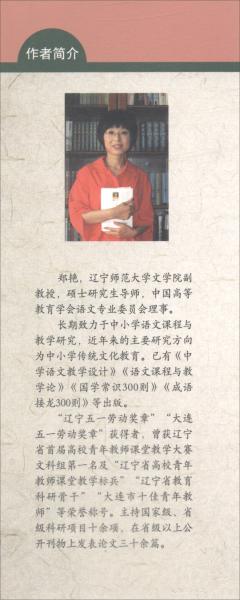 作者简介
郑艳，辽宁师范大学文学院副
教授，硕士研究生导师，中国高等
教育学会语文专业委员会理事。
长期致力于中小学语文课程与
教学研究，近年来的主要研究方向
为中小学传统文化教育。已有《中
学语文教学设计》《语文课程与教
学论》《国学常识300则》《成语
接龙300则》等出版。
“辽宁五一劳动奖章”“大连
五一劳动奖章”获得者，曾获辽宁
省首届高校青年教师课堂教学大赛
文科组第一名及“辽宁省高校青年
教师课堂教学标兵”“辽宁省教育
科研骨干”“大连市十佳青年教
师”等荣誉称号。主持国家级、省
级科研项目十余项，在省级以上公
开刊物上发表论文三十余篇。